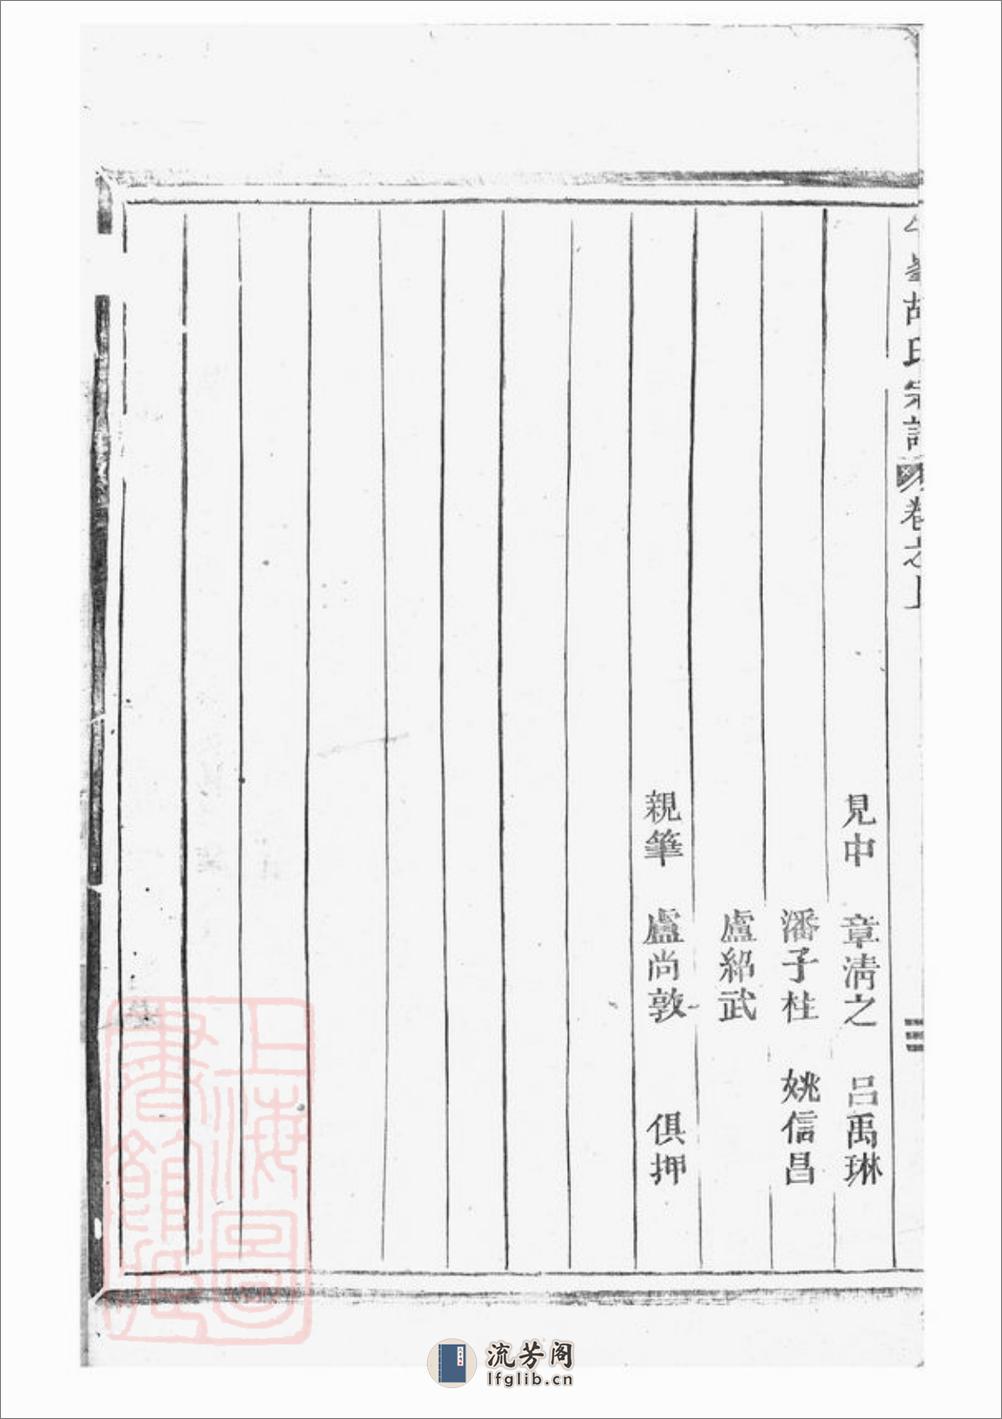 胡氏宗譜 卷之上
見中 章淸之 吕禹琳
潘子柱 姚信昌
盧紹武
親筆 盧尚敦 俱押
上海圖
書館藏
流芳阁
lfglib.cn